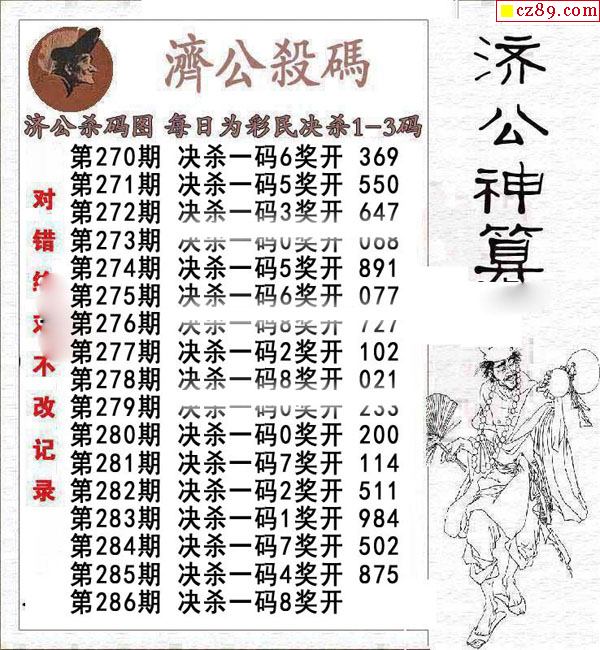 cz89.com
濟公殺碼
济公杀码图 每日为彩民决杀1-3码
第270期 决杀一码6奖开 369
第271期 决杀一码5奖开 550
第272期 决杀一码3奖开 647
第273期 决杀一码0奖开 068
第274期 决杀一码5奖开 891
第275期 决杀一码6奖开 077
第276期 决杀一码8奖开 727
第277期 决杀一码2奖开 102
第278期 决杀一码8奖开 021
第279期 决杀一码0奖开 233
第280期 决杀一码0奖开 200
第281期 决杀一码7奖开 114
第282期 决杀一码2奖开 511
第283期 决杀一码1奖开 984
第284期 决杀一码7奖开 502
第285期 决杀一码4奖开 875
第286期 决杀一码8奖开
对错 不改记录
济公神算